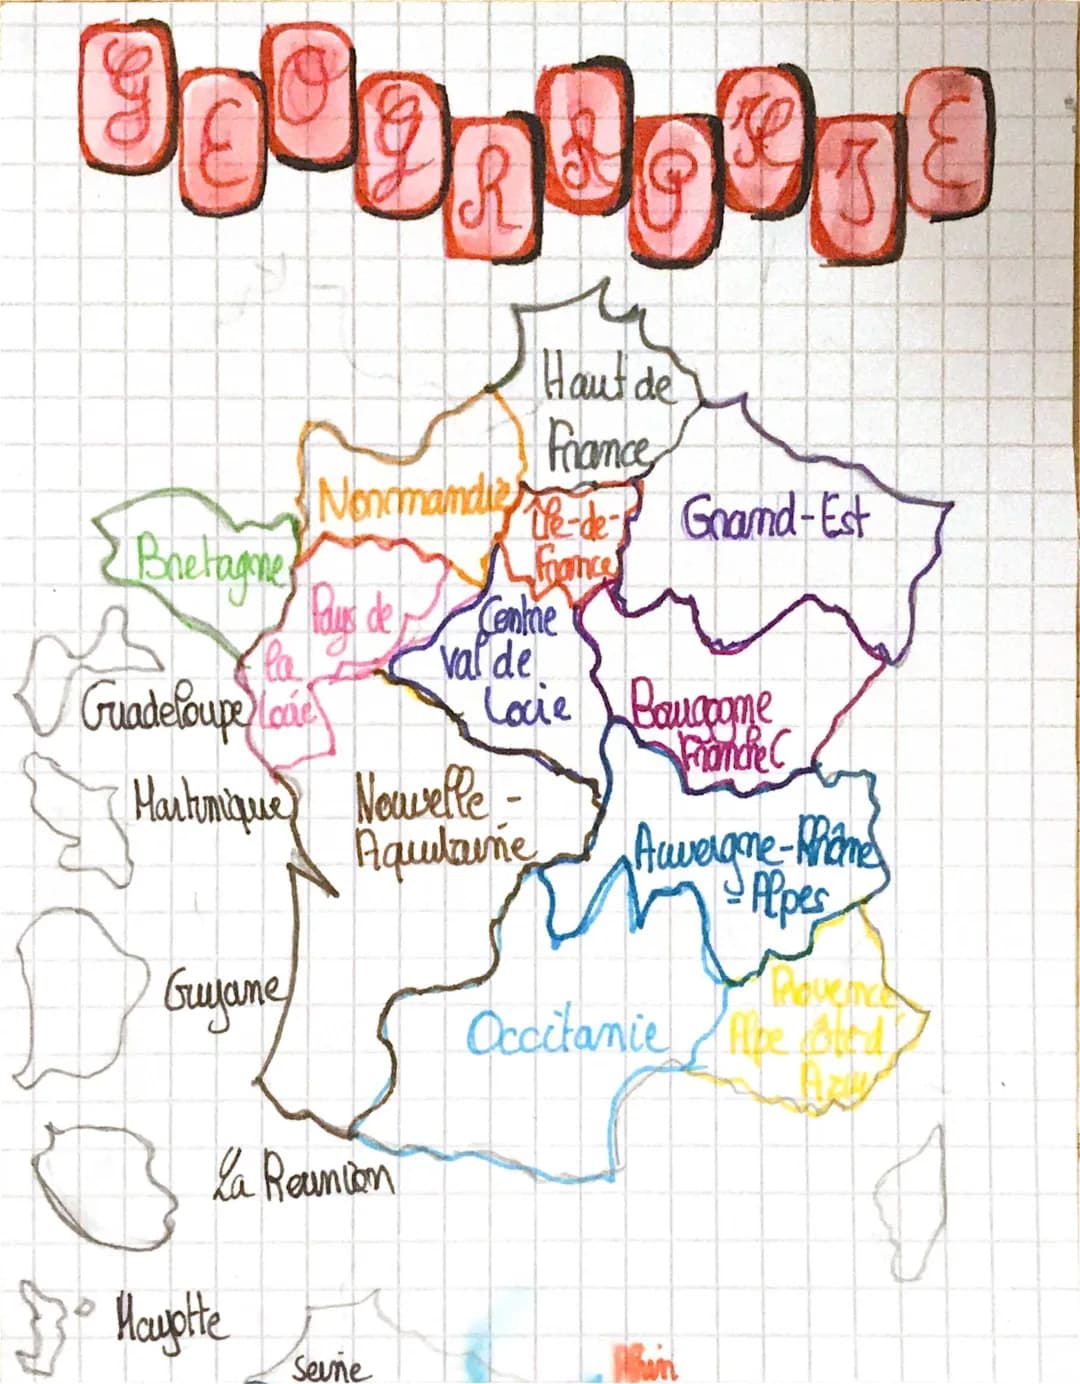 GEOGRAPHIE
Haut de
France
Normandie
Île-de-
France
Grand-Est
Bretagne
Pays de
la
Loire
Centre
val de
Loire
Guadeloupe
Bourgogne
Franche C
Martinique
Nouvelle-
Aquitaine
Auvergne-Rhône
-Alpes
Guyane
Occitanie
Provence
Alpe côte d'
Azur
La Reunion
Mayotte
Seine
Rhin